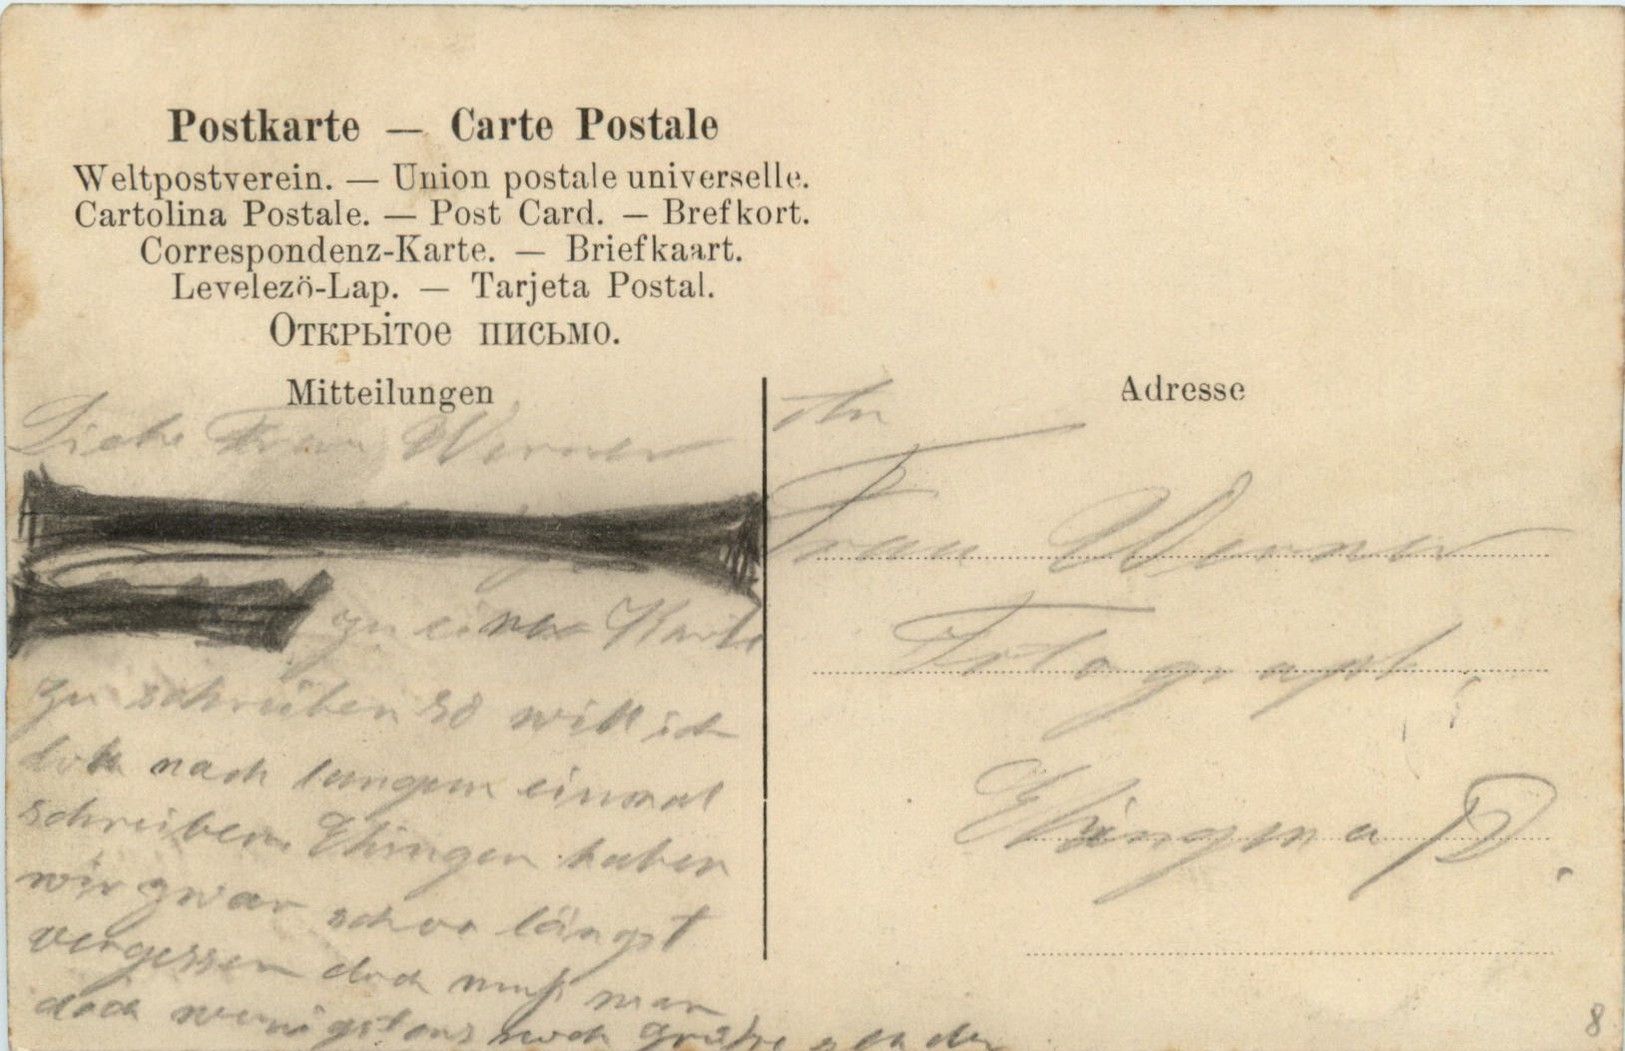 Postkarte — Carte Postale
Weltpostverein. — Union postale universelle.
Cartolina Postale. — Post Card. — Brefkort.
Correspondenz-Karte. — Briefkaart.
Levelezö-Lap. — Tarjeta Postal.
Открытое письмо.
Mitteilungen
Liebe Frau Werner
zu einer Karte
zu schreiben so will ich
doch nach langem einmal
schreiben. Ehingen haben
wir zwar schon längst
vergessen doch muß man
doch wenigstens noch Grüße senden
Adresse
An
Frau Werner
Fotograph.
Ehingen a/D.
8